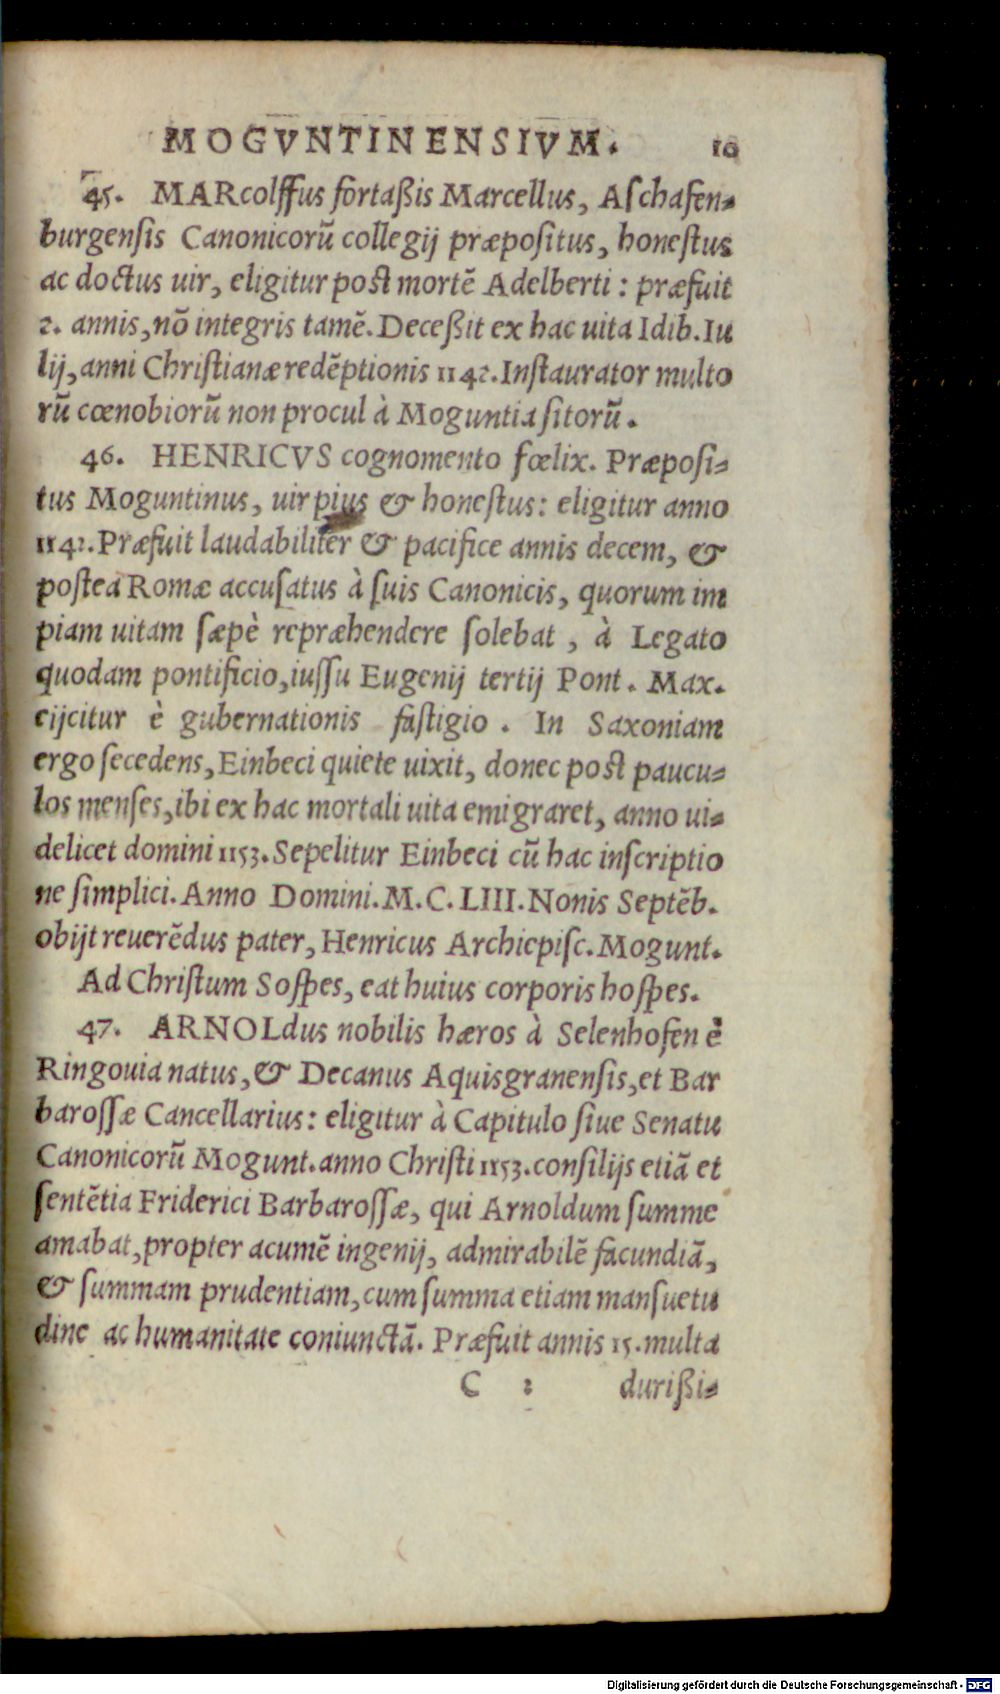 MOGVNTINENSIVM. 10
45. MARcolffus fortaßis Marcellus, Aſchafen-
burgenſis Canonicorũ collegij præpoſitus, honeſtus
ac doctus uir, eligitur poſt mortẽ Adelberti: præfuit
2. annis, nõ integris tamẽ. Deceßit ex hac uita Idib. Iu
lij, anni Chriſtianæ redẽptionis 1142. Inſtaurator multo
rũ cœnobiorũ non procul à Moguntia ſitorũ.
46. HENRICVS cognomento fœlix. Præpoſi-
tus Moguntinus, uir pius & honeſtus: eligitur anno
1142. Præfuit laudabiliter & pacifice annis decem, &
poſtea Romæ accuſatus à ſuis Canonicis, quorum im
piam uitam ſæpè repræhendere ſolebat, à Legato
quodam pontificio, iuſſu Eugenij tertij Pont. Max.
eijcitur è gubernationis faſtigio. In Saxoniam
ergo ſecedens, Einbeci quiete uixit, donec poſt paucu-
los menſes, ibi ex hac mortali uita emigraret, anno ui-
delicet domini 1153. Sepelitur Einbeci cũ hac inſcriptio
ne ſimplici. Anno Domini. M. C. LIII. Nonis Septẽb.
obijt reuerẽdus pater, Henricus Archiepiſc. Mogunt.
Ad Chriſtum Soſpes, eat huius corporis hoſpes.
47. ARNOLdus nobilis hæros à Selenhofen è
Ringouia natus, & Decanus Aquisgranenſis, et Bar
baroſſæ Cancellarius: eligitur à Capitulo ſiue Senatu
Canonicorũ Mogunt. anno Chriſti 1153. conſilijs etiã et
ſentẽtia Friderici Barbaroſſæ, qui Arnoldum ſumme
amabat, propter acumẽ ingenij, admirabilẽ facundiã,
& ſummam prudentiam, cum ſumma etiam manſuetu
dine ac humanitate coniunctã. Præfuit annis 15. multa
C 2 durißi-
Digitalisierung gefördert durch die Deutsche Forschungsgemeinschaft - DFG